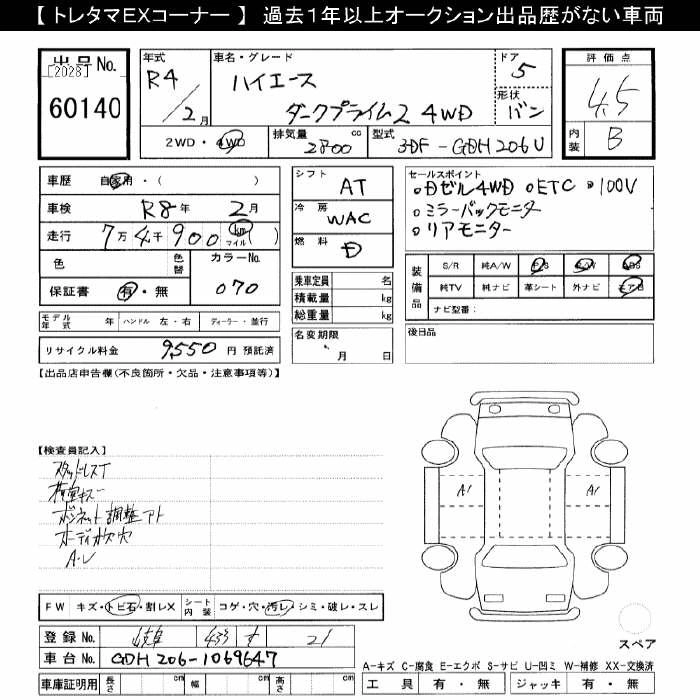 【 トレタマEXコーナー 】 過去１年以上オークション出品歴がない車両
出品No.
[2028]
60140
年式
R4/2月
車名・グレード
ハイエース
ダークプライム2 4WD
ドア
5
形状
バン
評価点
4.5
内装
B
2WD・4WD
排気量 2800 cc
型式 3DF-GDH206V
車歴 自家用・( )
車検 R8年 2月
走行 7万4千900 (km マイル)( )
色
色替
カラーNo.
070
保証書 有・無
モデル年式 年 ハンドル 左・右 ディーラー・並行
リサイクル料金 9,550 円 預託済
シフト AT
冷房 WAC
燃料 D
乗車定員 名
積載量 kg
総重量 kg
名変期限
月 日
セールスポイント
○Dゼル4WD ○ETC ○100V
○ミラーバックモニター
○リアモニター
装備品
S/R 純A/W P/S P/W ABS
純TV 純ナビ 革シート 外ナビ エアB
ナビ型番：
後日品
【出品店申告欄(不良箇所・欠品・注意事項等)】
【検査員記入】
スタッドレスT
ボンネット調整アト
A-L
A1
A1
スペア
FW キズ・トビ石・割レX
シート内装 コゲ・穴・汚レ・シミ・破レ・スレ
登録No. 岐阜 433 す 21
車台No. GDH206-1069647
車庫証明用 長さ cm 幅 cm 高さ cm
A-キズ C-腐食 E-エクボ S-サビ U-凹ミ W-補修 XX-交換済
工具 有・無 ジャッキ 有・無